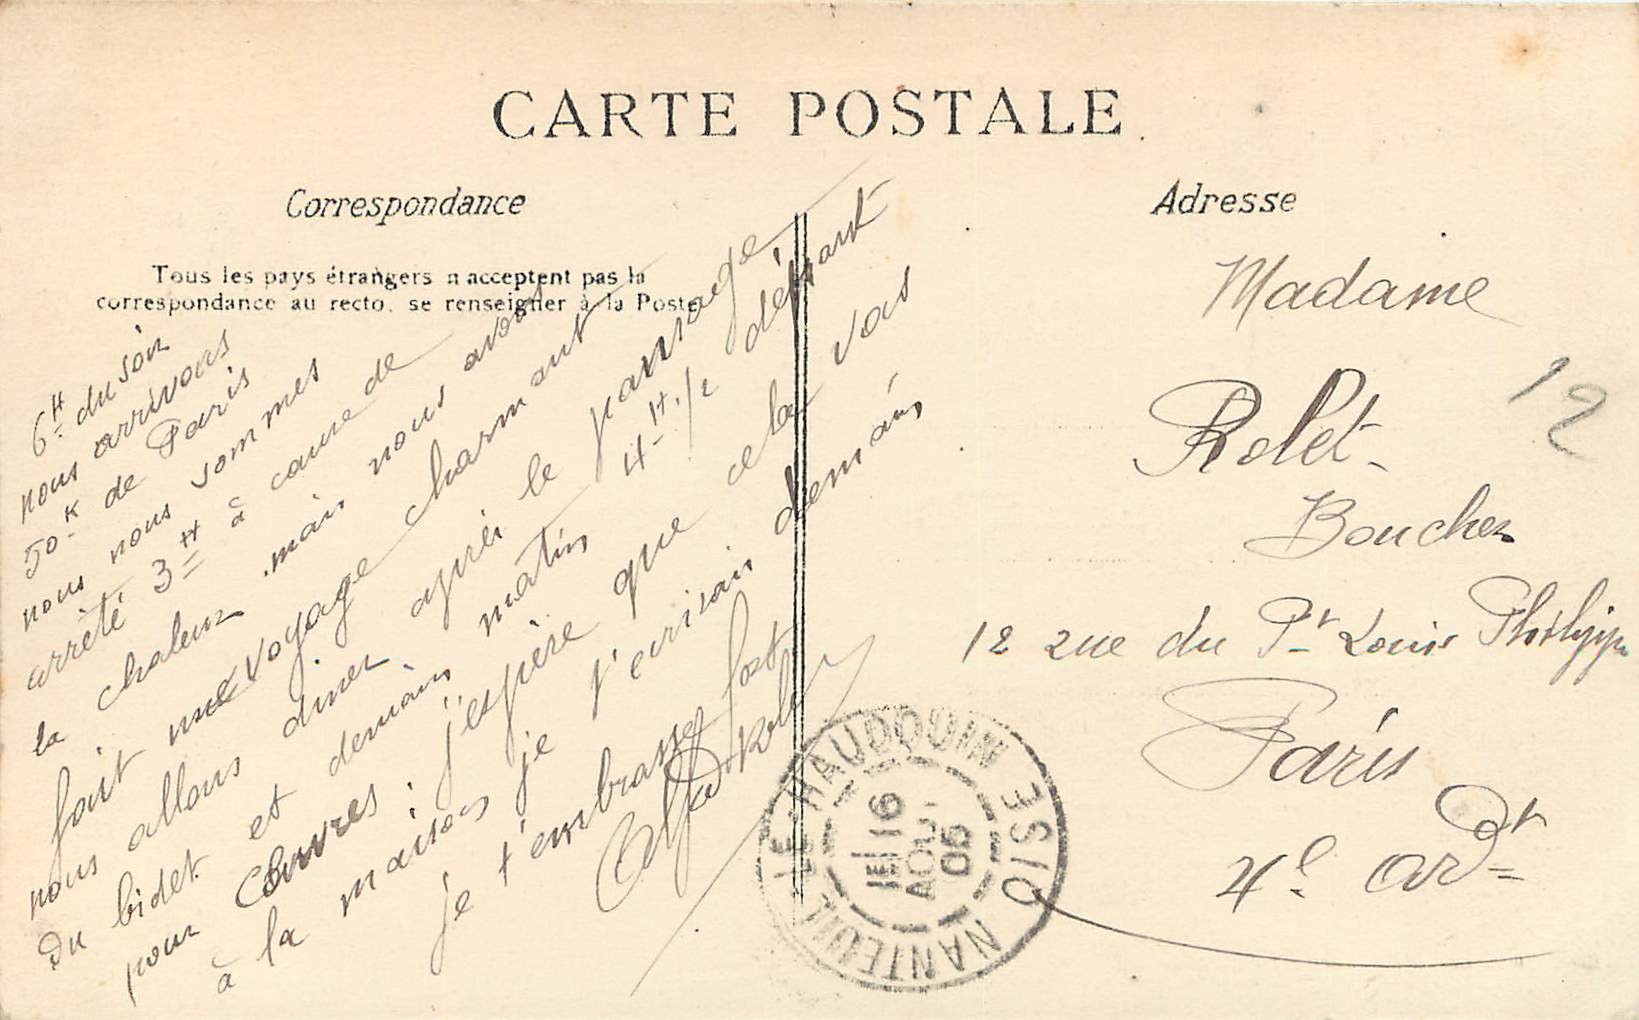 CARTE POSTALE
Correspondance
Tous les pays étrangers n'acceptent pas la
correspondance au recto. se renseigner à la Poste
6H du soir
nous arrivons
50K de Paris
nous nous sommes
arrêté 3H à cause de
la chaleur mais nous avons
fait un voyage charmant
nous allons diner après le pansage
du bidet et demain matin 4H 1/2 départ
pour Cuvres. j'espère que cela vas
à la maison je t'ecrirais demain
je t'embrasses fort
Alfred Rolet
Adresse
Madame
Rolet
Boucher
12 rue du Pt Louis Philippe
Paris
4e ardt
12
NANTEUIL-LE-HAUDOUIN OISE
16
AOU.
05